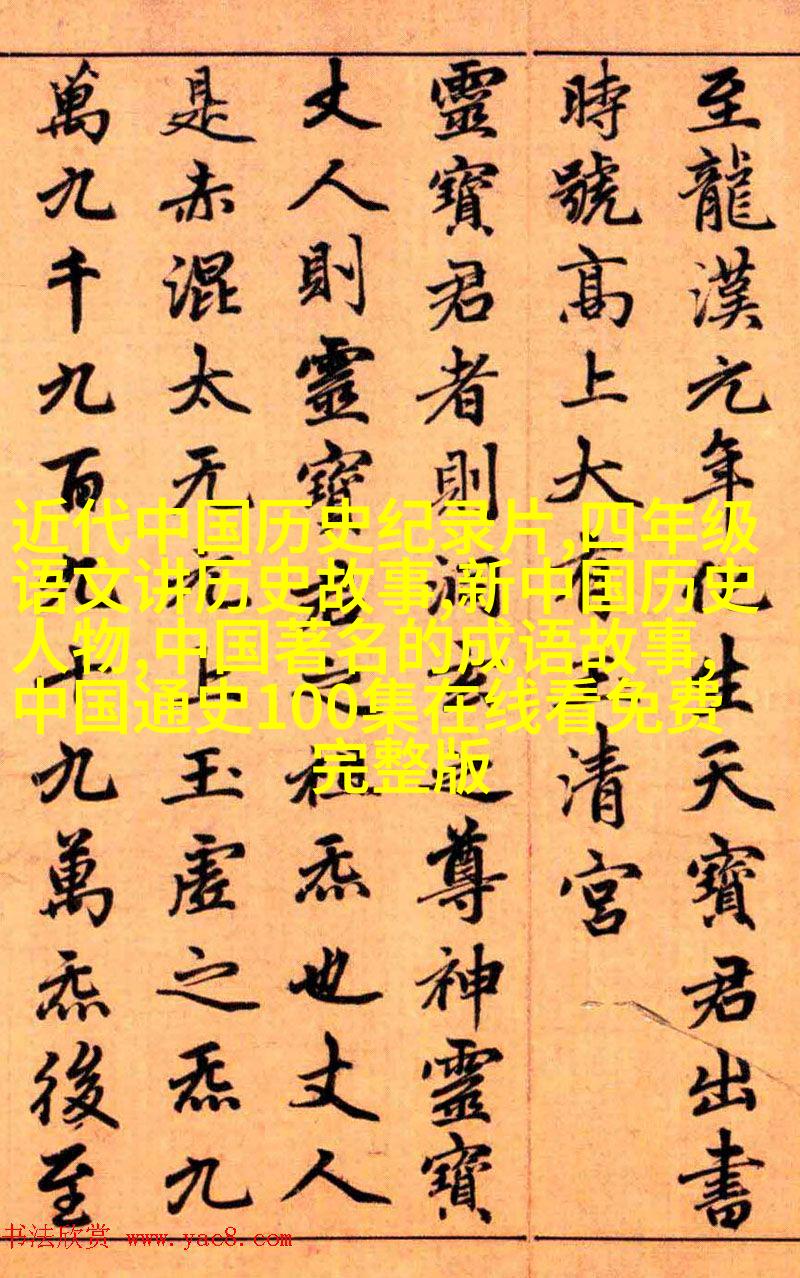 至龍漢元年化生天寶君出書
時號高上大有玉清宮
靈寶君者則洞玄之尊神靈寶
丈人則靈寶君之祖炁也丈人
是赤混太无元上玉虛之炁九
萬九千九百九十九萬炁後至
近代中国历史纪录片,四年级
语文讲历史故事,新中国历史
人物,中国著名的成语故事,
中国通史100集在线看免费
完整版
书法欣赏 www.yac8.com